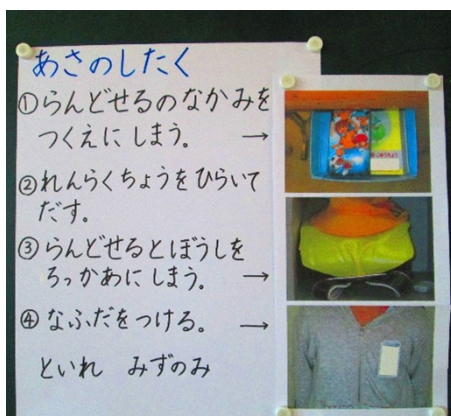 あさのしたく
①らんどせるのなかみを
つくえにしまう。 →
②れんらくちょうをひらいて
だす。
③らんどせるとぼうしを
ろっかあにしまう。 →
④なふだをつける。 →
といれ みずのみ